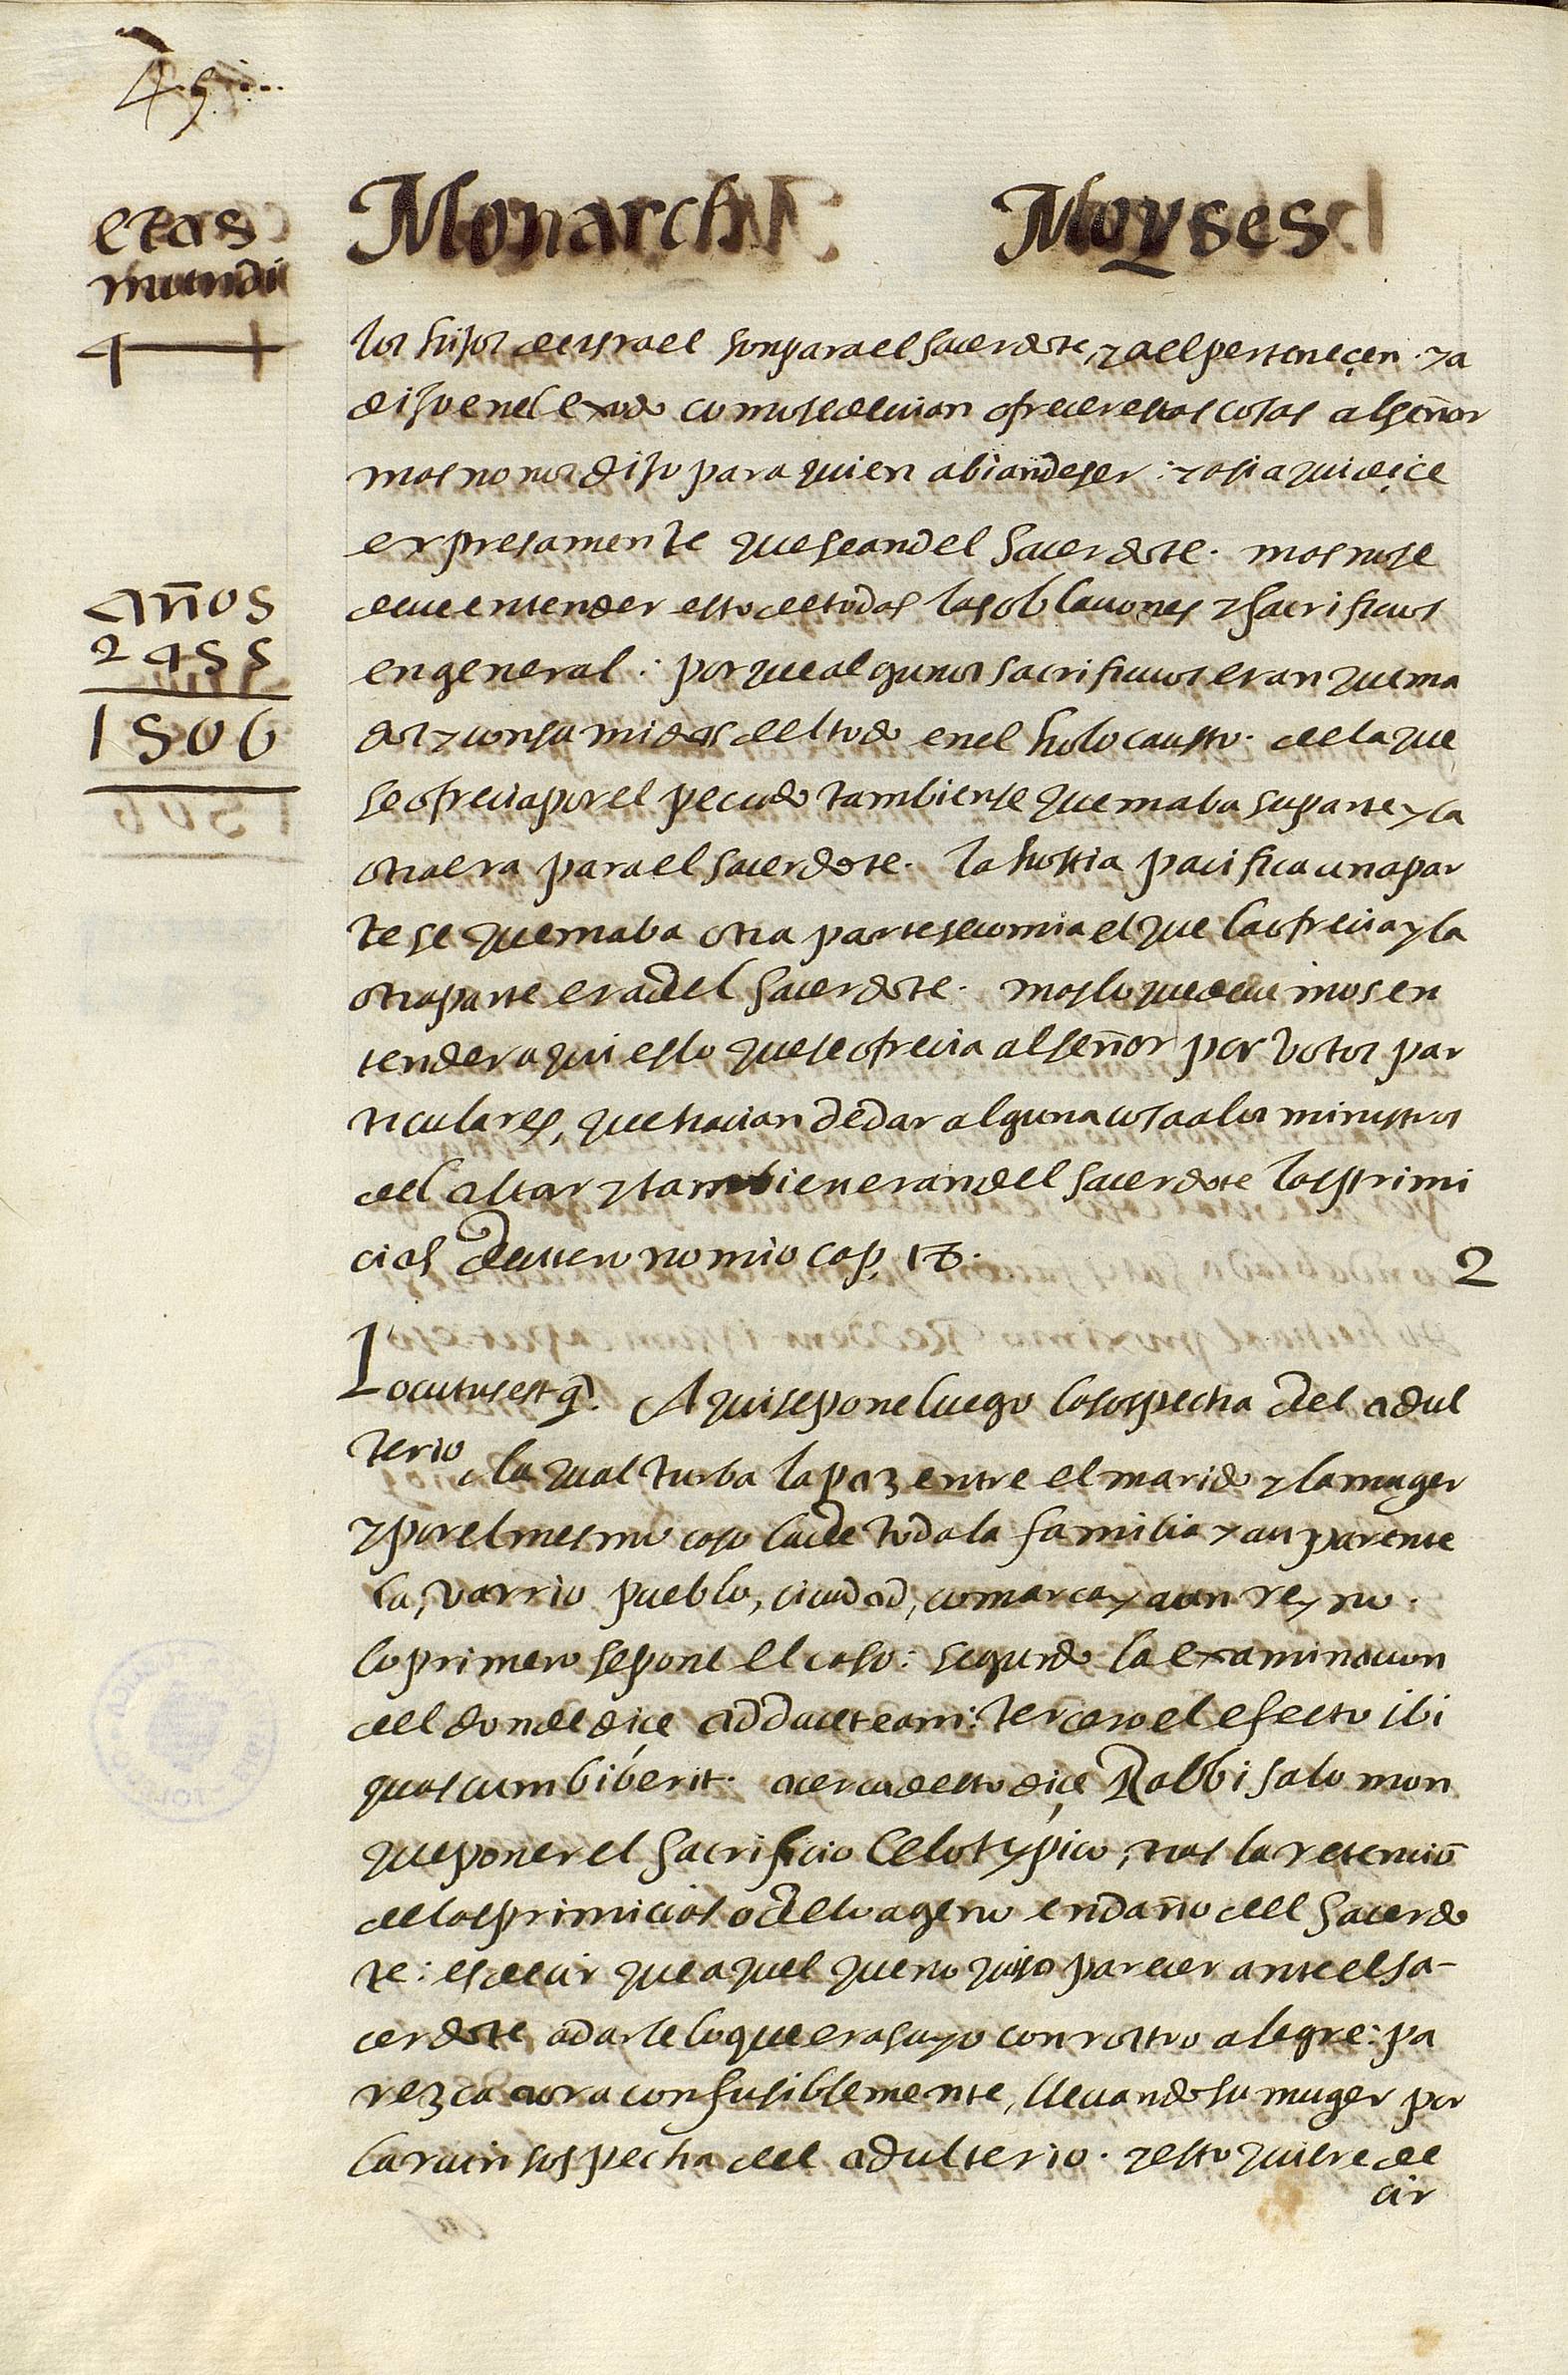 45
etas
mundi
4
Monarch Moyses
los hijos de israel son para el sacerdote, y a el perteneçen. ya
dijo en el exodo como se deuian ofrecer estas cosas al señor
mas no nos dijo para quien abian de ser: y asi aqui diçe
expresamente que sean del sacerdote. mas no se
deue entender esto de todas las oblaciones y sacrificios
en general: porque algunos sacrificios eran quema
dos y consumidos del todo en el holocausto. de la que
se ofrecia por el pecado tambien se quemaba su parte y la
otra era para el sacerdote. la hostia pacifica una par
te se quemaba otra parte se comia el que la ofrecia y la
otra parte era del sacerdote. mas lo que deuimos en
tender aqui es lo que se ofrecia al señor por votos par
ticulares, que hacian de dar alguna cosa a los ministros
del altar y tambien eran del sacerdote las primi
cias deuteronomio cap. 18.
2
años
2455
1506
Locutus est q. Aqui se pone luego la sospecha del adul
terio, la qual turba la paz entre el marido y la muger
y por el mesmo caso la de toda la familia y au parente
la, varrio pueblo, ciudad, comarca y aun reyno.
lo primero se pone el caso: segundo la examinacion
del donde diçe adducet eam: tercero el efecto ibi
quas cum biberit. acerca desto diçe Rabbi salomon
que poner el sacrificio Celotypico, tras la retenciõ
de las primicias o de lo ageno en daño del sacerdo
te: es decir que aquel que no quiso parecer ante el sa-
cerdote, a darle lo que era suyo con rostro alegre: pa
rezca aora confusiblemente, lleuando su muger por
la ruin sospecha del adulterio. y esto quiere de
cir